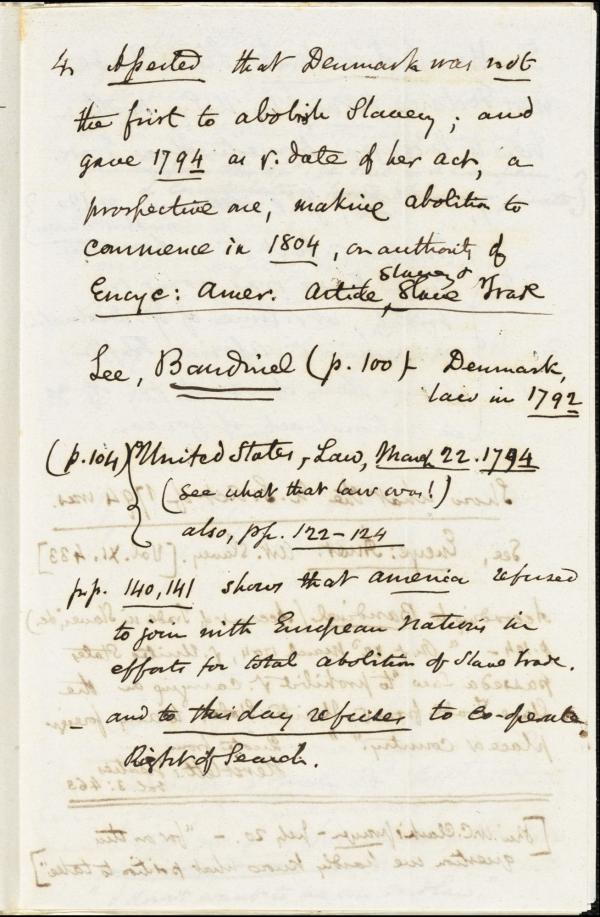 4. Asserted that Denmark was not
the first to abolish Slavery; and
gave 1794 as date of her act, a
prospective one, making abolition to
commence in 1804, on authority of
Encyc: Amer. Article, Slavery & Slave Trade
See, Bandinel (p. 100) Denmark,
law in 1792
(p. 104) United States, Law, March 22. 1794
(see what that law was!)
also, pp. 122-124
pp. 140, 141 shows that America refused
to join with European Nations in
efforts for total abolition of Slave Trade.
- and to this day refuses to co-operate
Right of Search.